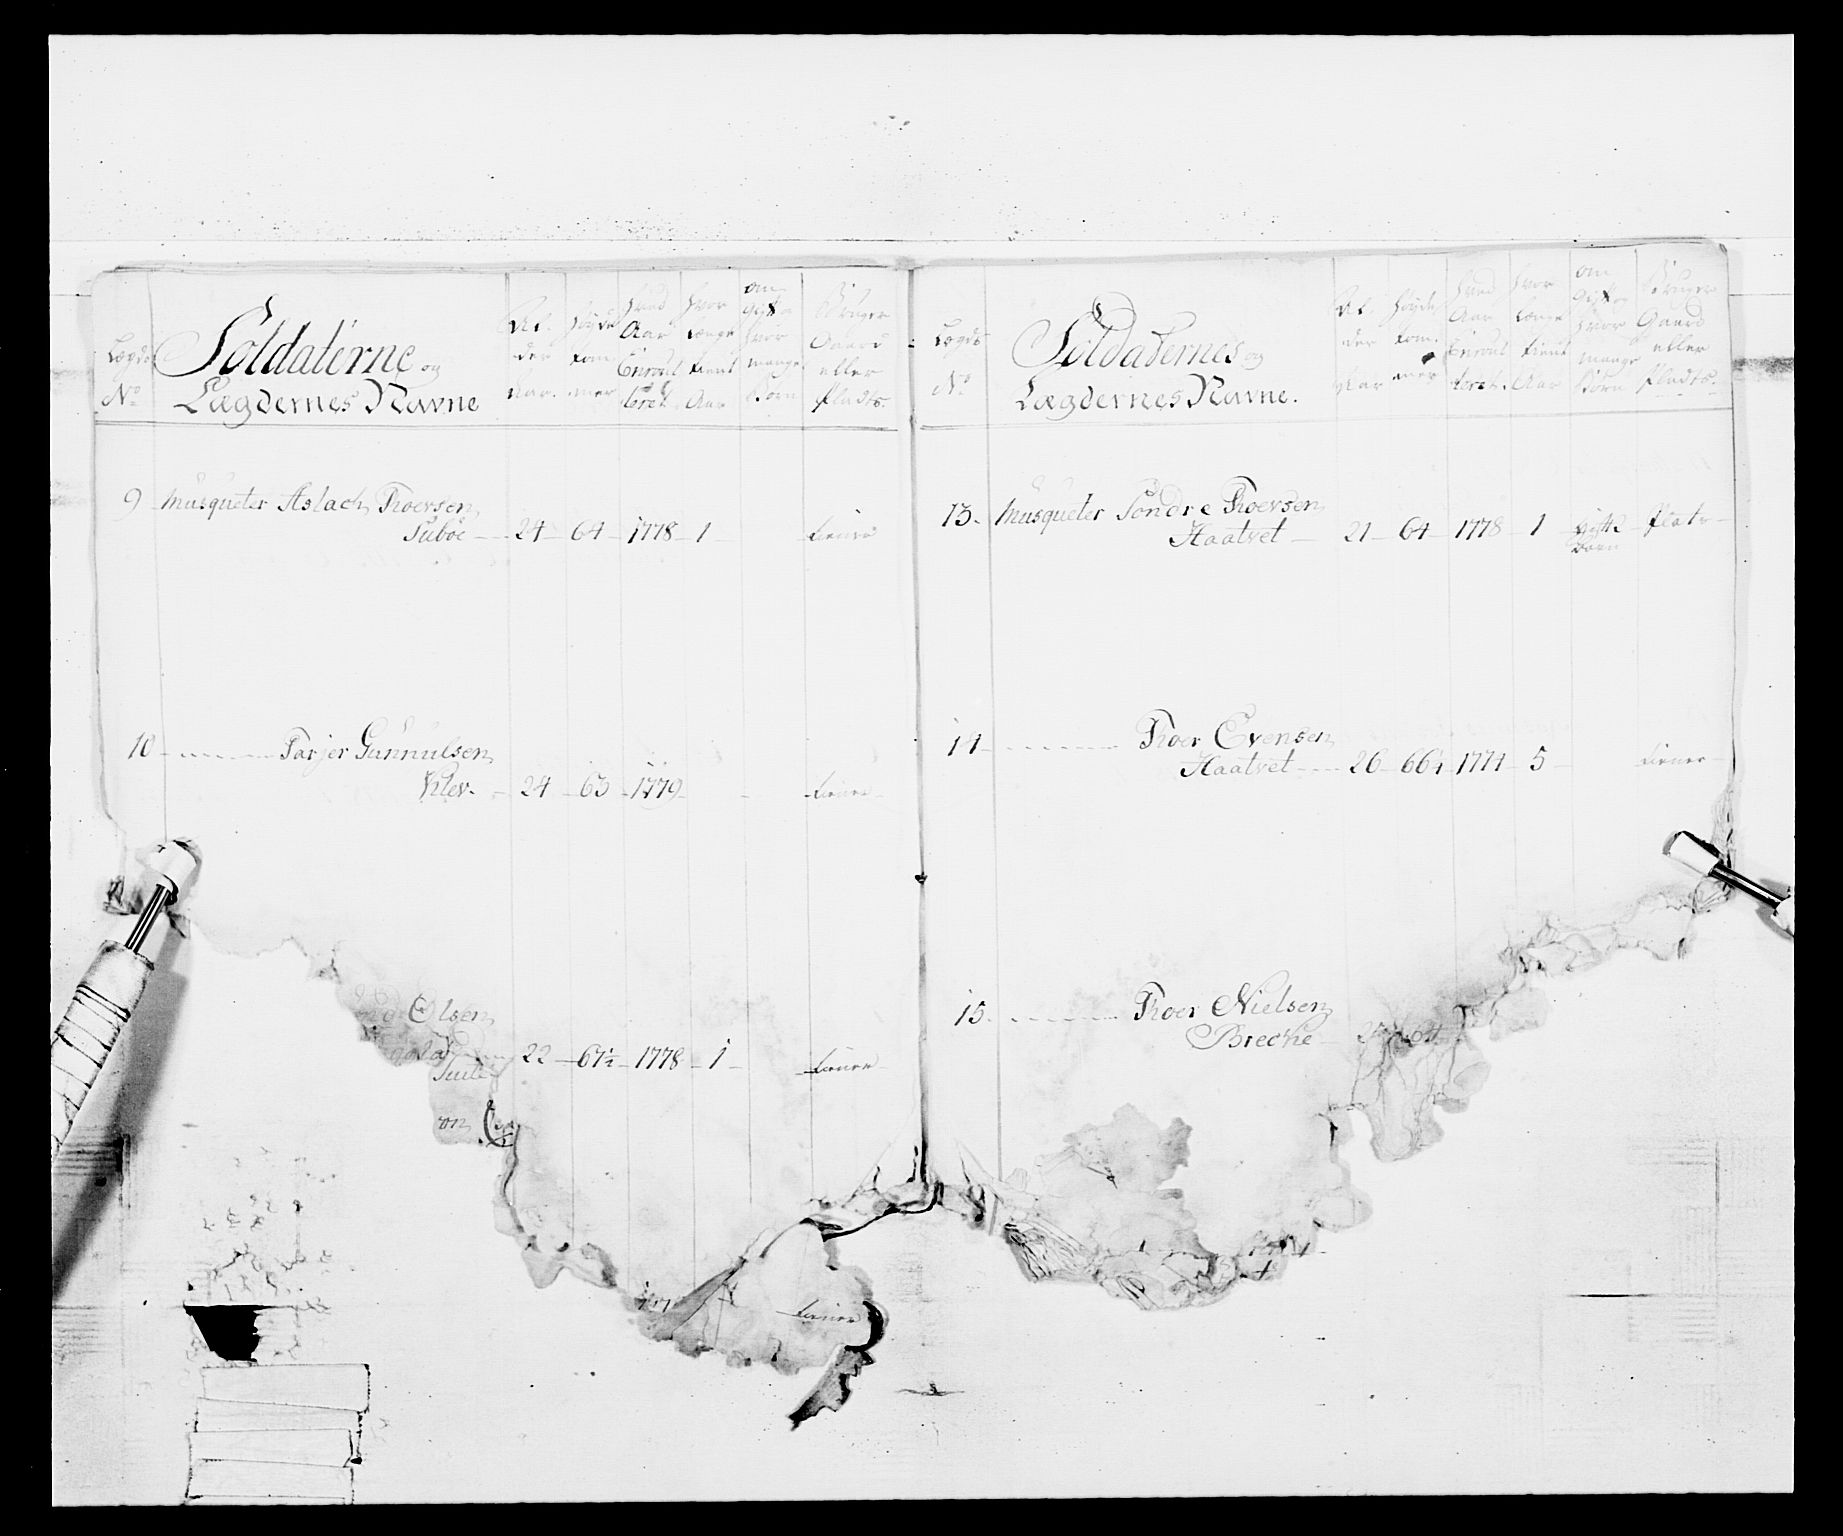 Lægds
No
Soldaterne og
Lægdernes Navne
Al-
der
Aar.
Høyde
Tom-
mer
Hvad
Aar
Enroul
leret.
Hvor
længe
tient
Aar
om
Gift og
Hvor
mange
Børn
Bruger
Gaard
eller
Plads.
9 Musqueter Aslach Thoersen
Suboe 24 64 1778 1 tiener
10 Tarjer Gunnulsen
Klev. 24 63 1779 tiener
Olsen
22 67½ 1778 1 tiener
tiener
Lægds
No
Soldaternes og
Lægdernes Navne.
Al-
der
Aar
Høyde
Tom-
mer
Hvad
Aar
Enroul
leret.
Hvor
længe
tient
Aar
om
Gift og
Hvor
mange
Børn
Bruger
Gaard
eller
Plads.
13. Musqueter Sondre Thoersen
Haatvet 21 64 1778 1 gift 2 Plads
Børn
14 Thoer Evensen
Haatvet 26 66½ 1774 5 tiener
15. Thoer Nielsen
Brecke